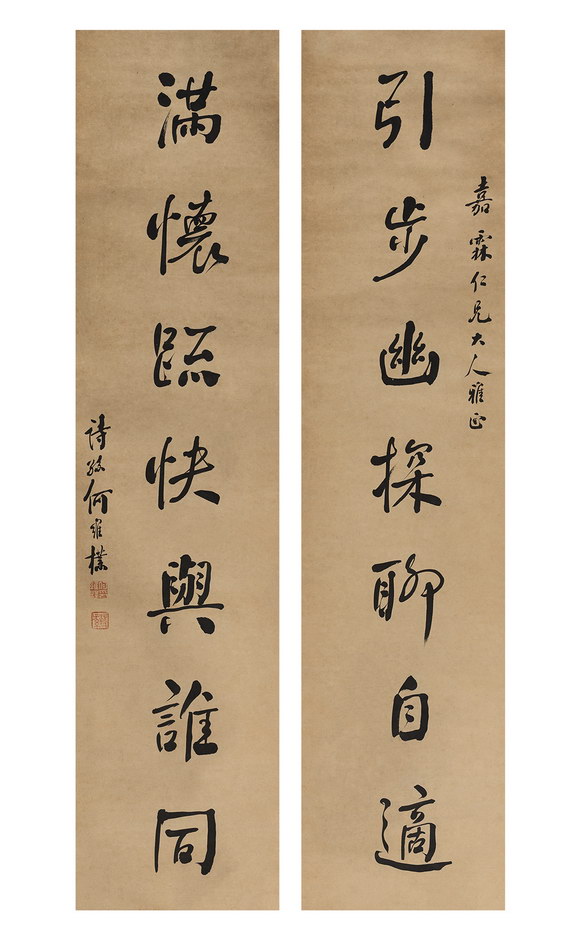 嘉霖仁兄大人雅正
引步幽探聊自適
滿懷疏快與誰同
詩孫何維樸